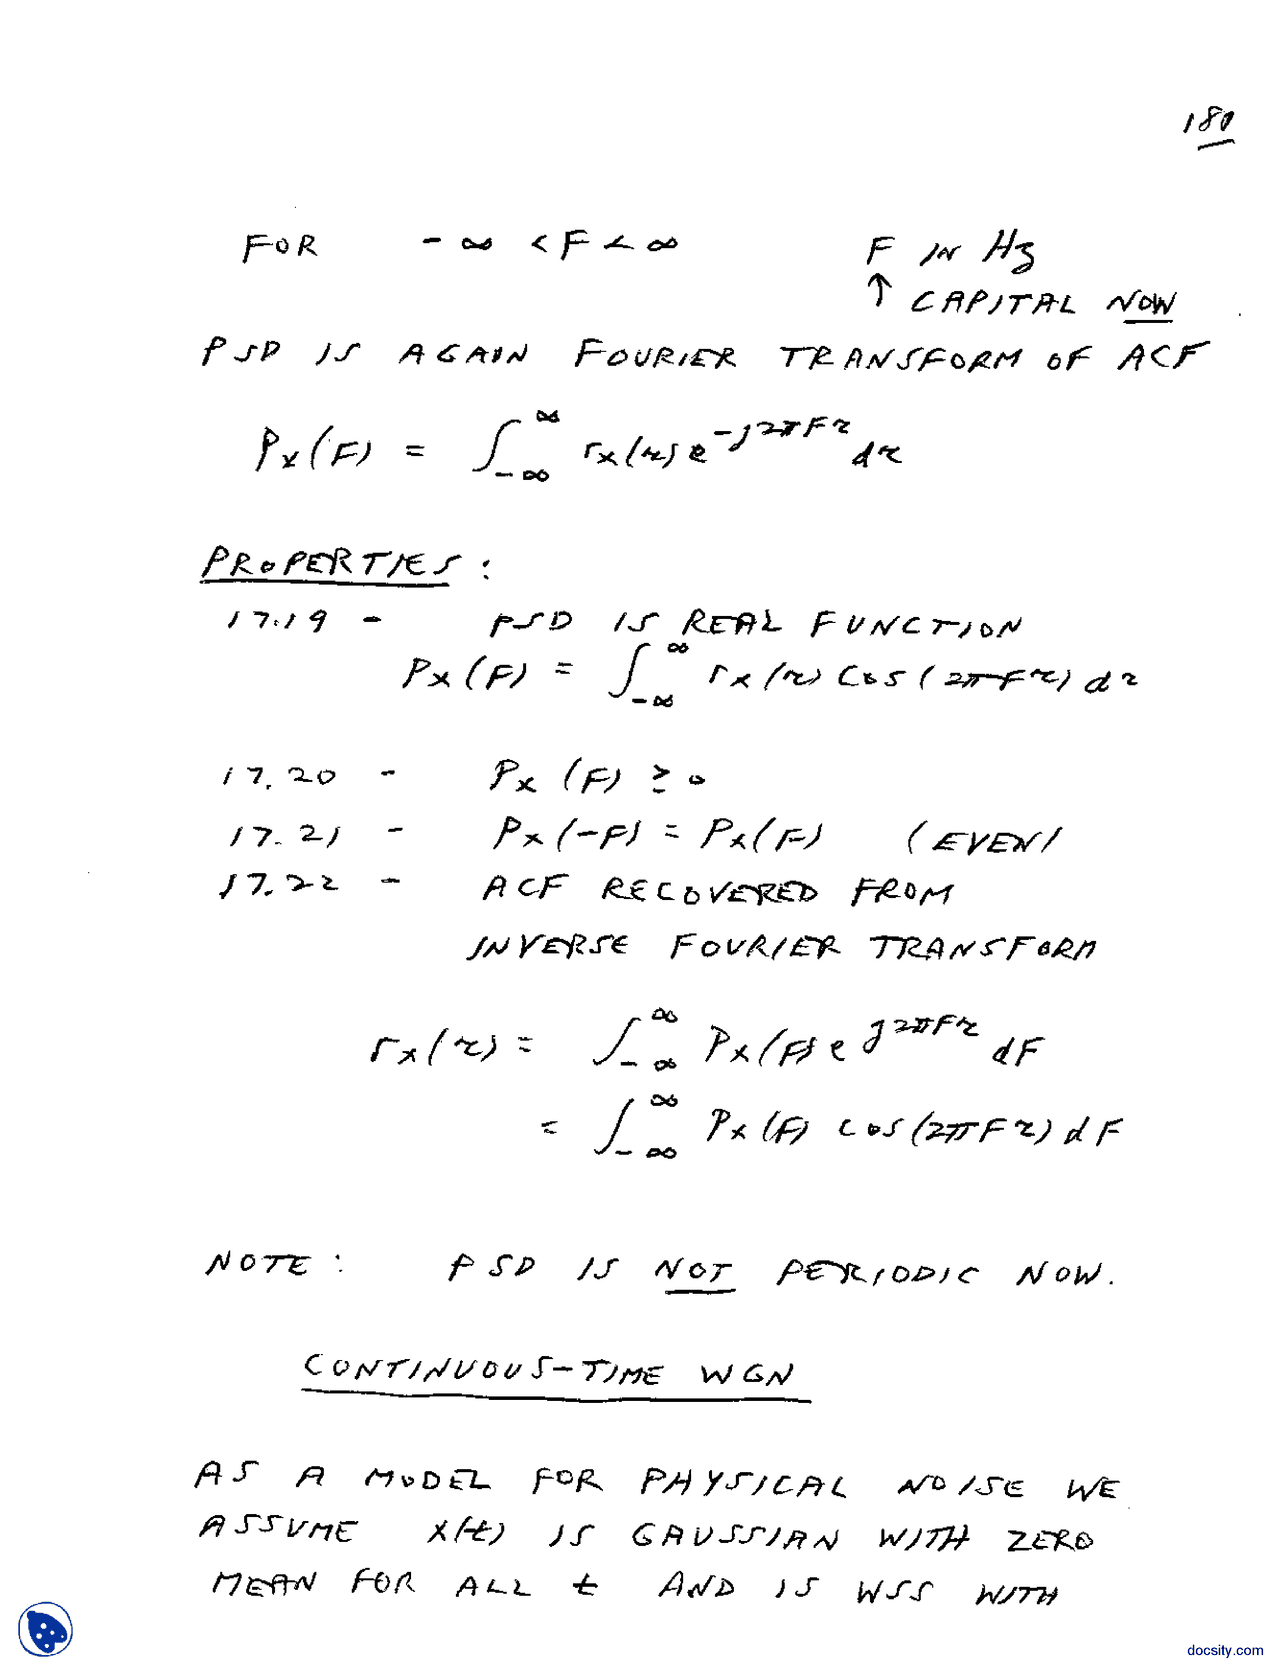 180
FOR -∞ < F < ∞ F IN Hz
↑ CAPITAL NOW
PSD IS AGAIN FOURIER TRANSFORM OF ACF
Px(F) = ∫_{-∞}^{∞} rx(τ) e^{-j2πFτ} dτ
PROPERTIES:
17.19 - PSD IS REAL FUNCTION
Px(F) = ∫_{-∞}^{∞} rx(τ) cos(2πFτ) dτ
17.20 - Px(F) ≥ 0
17.21 - Px(-F) = Px(F) (EVEN)
17.22 - ACF RECOVERED FROM
INVERSE FOURIER TRANSFORM
rx(τ) = ∫_{-∞}^{∞} Px(F) e^{j2πFτ} dF
= ∫_{-∞}^{∞} Px(F) cos(2πFτ) dF
NOTE: PSD IS NOT PERIODIC NOW.
CONTINUOUS-TIME WGN
AS A MODEL FOR PHYSICAL NOISE WE
ASSUME X(t) IS GAUSSIAN WITH ZERO
MEAN FOR ALL t AND IS WSS WITH
docsity.com